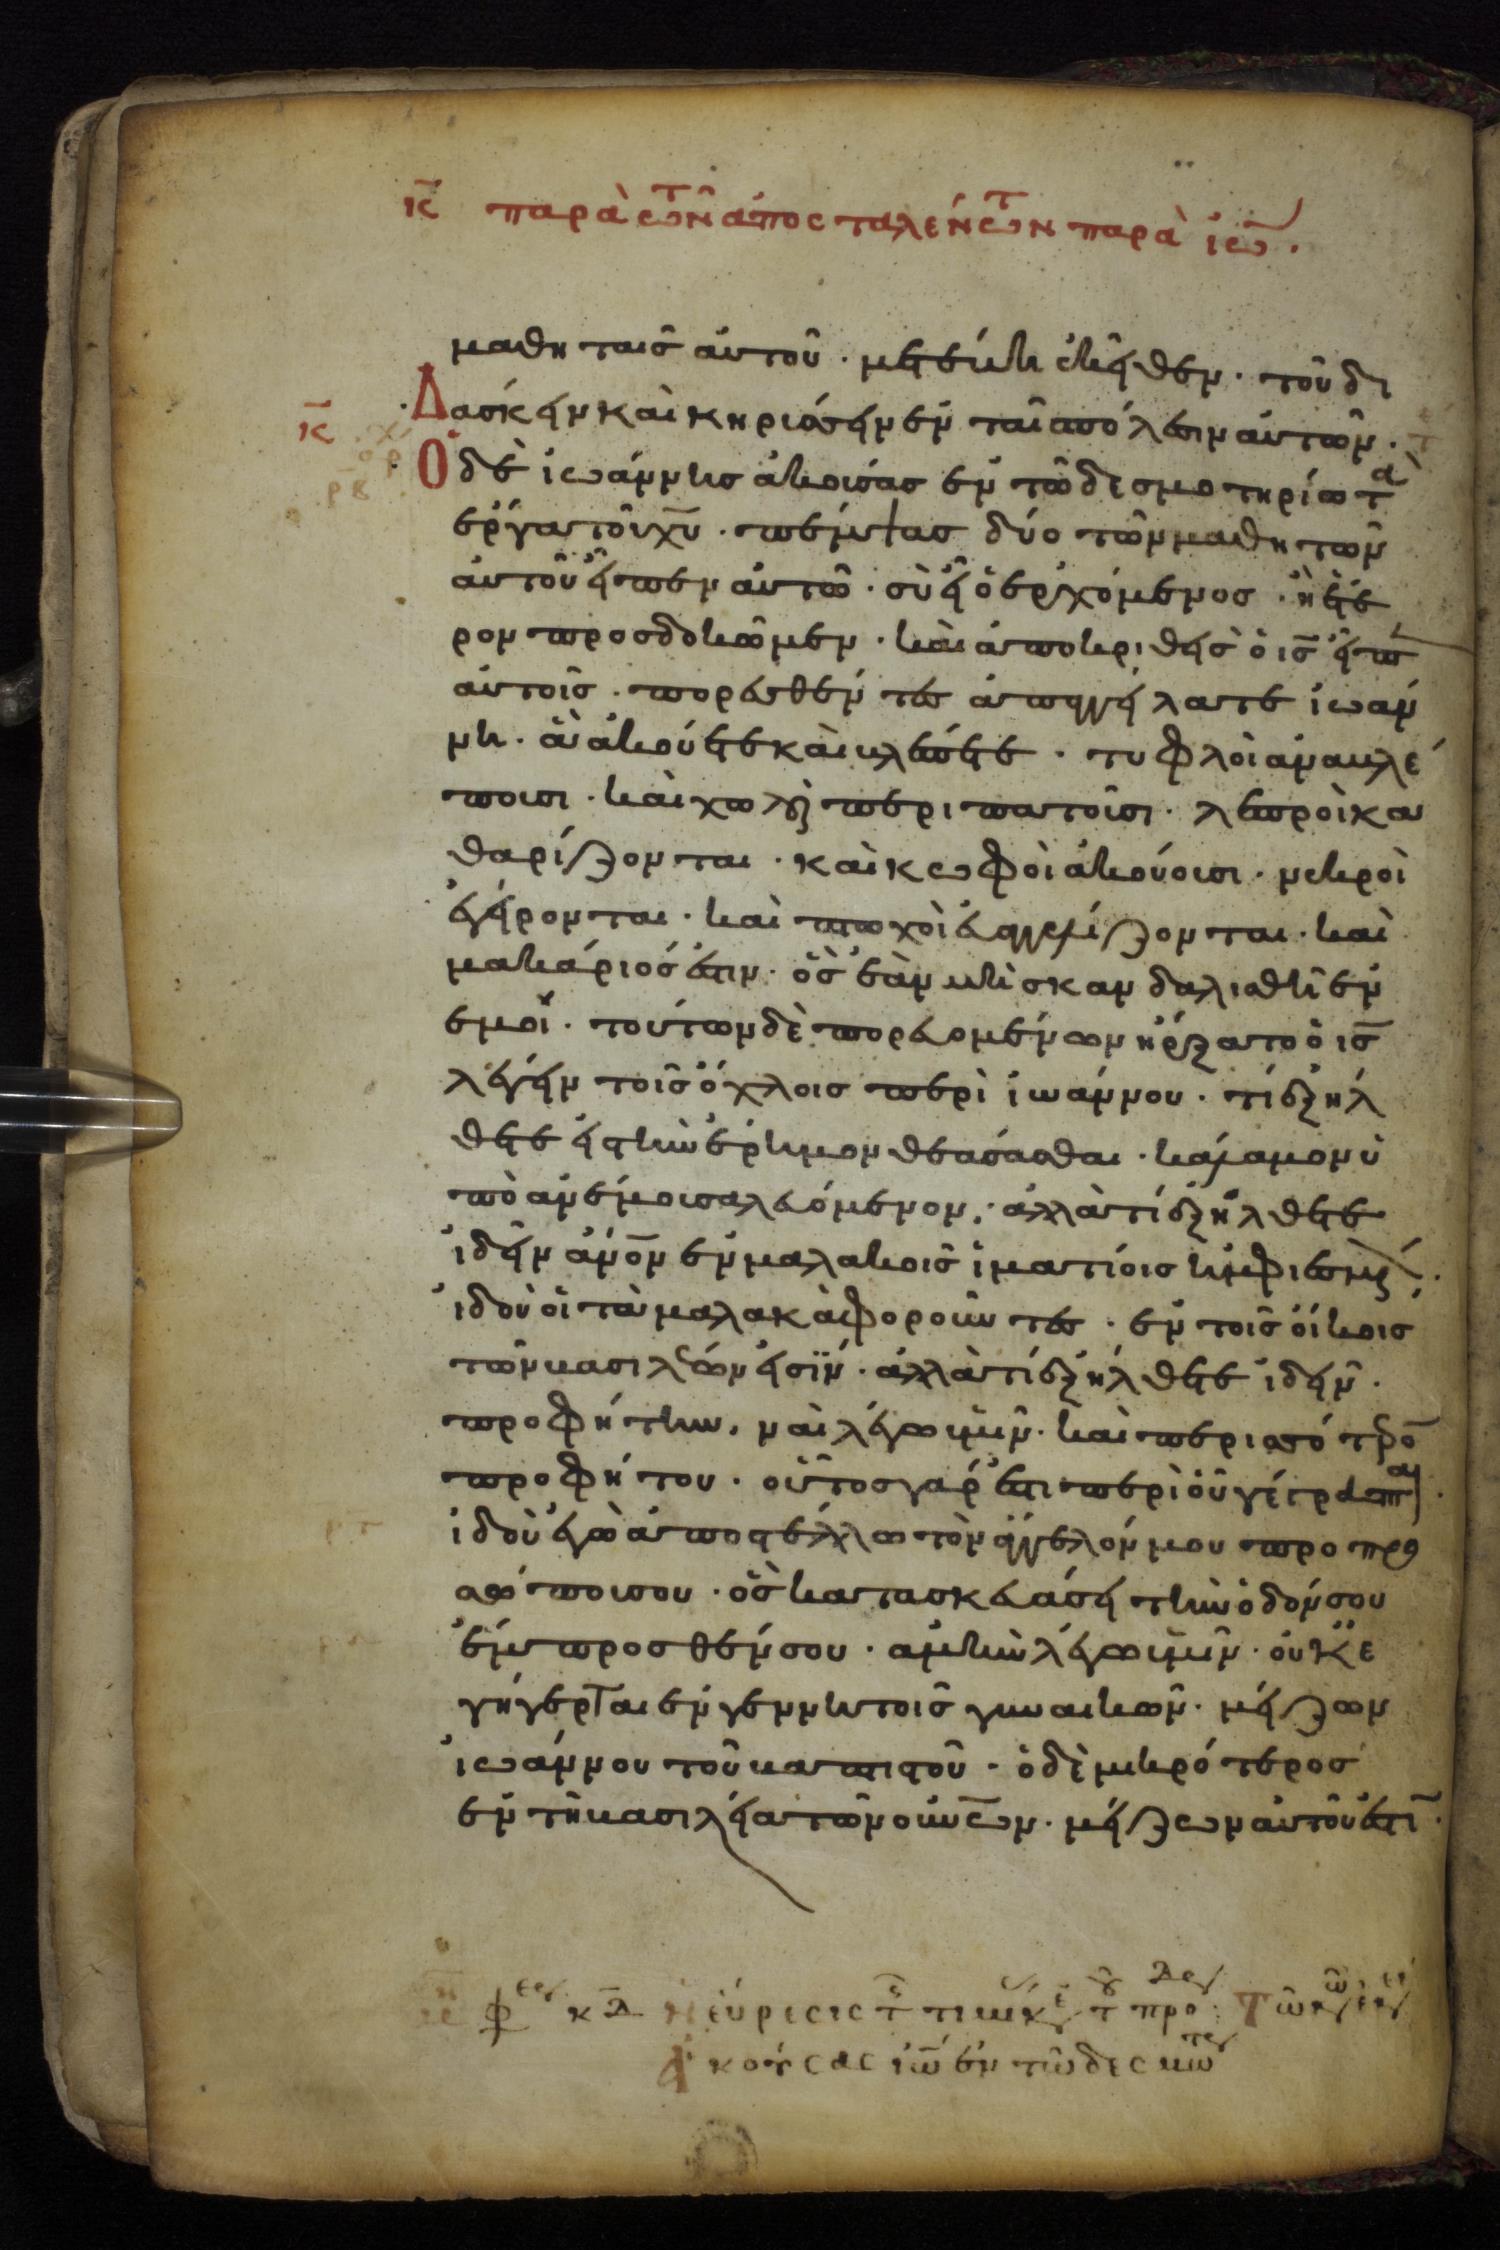 κ̅ παρὰ τῶν ἀποσταλέντων παρὰ ἰω̅.
μαθηταῖς αὐτοῦ · μετέβη ἐκεῖθεν · τοῦ δι
Δασκειν καὶ κηρύσσειν ἐν ταῖς πόλεσιν αὐτῶν ·
κ̅ Ὁ δὲ ἰωάννης ἀκούσας ἐν τῶ δεσμοτηρίω τὰ
ἔργα τοῦ χυ̅ · πέμψας δύο τῶν μαθητῶν
αὐτοῦ εἶπεν αὐτῶ · σὺ εἶ ὁ ἐρχόμενος · ἢ ἕτε
ρον προσδοκῶμεν · καὶ ἀποκριθεὶς ὁ ις̅ εἶπ
αὐτοῖς · πορευθέντες ἀπαγγείλατε ἰωάν
νη · ἃ ἀκούετε καὶ βλέπετε · τυφλοὶ ἀναβλέ
πουσι · καὶ χωλοὶ περιπατοῦσι · λεπροὶ κα
θαρίζονται · καὶ κωφοὶ ἀκούουσι · νεκροὶ
ἐγείρονται · καὶ πτωχοὶ εὐαγγελίζονται · καὶ
μακάριός ἐστιν · ὃς ἐὰν μὴ σκανδαλισθῆ ἐν
ἐμοί · τούτων δὲ πορευομένων ἤρξατο ὁ ις̅
λέγειν τοῖς ὄχλοις περὶ ἰωάννου · τί ἐξήλ
θετε εἰς τὴν ἔρημον θεάσασθαι · κάλαμον ὑ
πὸ ἀνέμου σαλευόμενον · ἀλλὰ τί ἐξήλθετε
ἰδεῖν ἄνο̅ν ἐν μαλακοῖς ἱματίοις ἠμφιεσμέ ·
ἰδοὺ οἱ τὰ μαλακὰ φοροῦντες · ἐν τοῖς οἴκοις
τῶν βασιλέων εἰσίν · ἀλλὰ τί ἐξήλθετε ἰδεῖν ·
προφήτην · ναὶ λέγω ὑμῖν · καὶ περισσότρο̅
προφήτου · οὗτος γάρ ἐστι περὶ οὗ γέγραπται ·
ἰδοὺ ἐγὼ ἀποστέλλω τὸν ἄγγελόν μου προ προ
σώπου σου · ὃς κατασκευάσει τὴν ὁδόν σου
ἔμπροσθέν σου · ἀμὴν λέγω ὑμῖν · οὐκ ἐ
γήγερται ἐν γεννητοῖς γυναικῶν · μείζων
ἰωάννου τοῦ βαπτιστοῦ · ὁ δὲ μικρότερος
ἐν τῆ βασιλεία τῶν οὐνω̅ν · μείζων αὐτοῦ ἐστι̅ ·
κδ̅ εὕρεσις τ τιμ κε τ προ
ἀκούσας ἰω̅ ἐν τῶ δεσμω